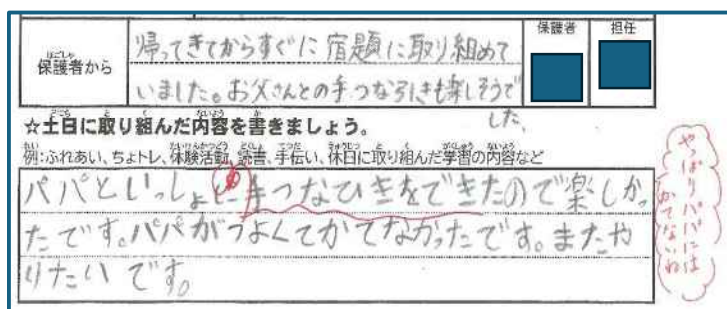 保護者から
ほごしゃ
帰ってきてからすぐに宿題に取り組めて
いました。お父さんとの手つな引きも楽しそうで
した。
保護者
担任
☆土日に取り組んだ内容を書きましょう。
例:ふれあい、ちょトレ、体験活動、読書、手伝い、休日に取り組んだ学習の内容など
パパといっしょと手つなひきをできたので楽しかっ
たです。パパがつよくてかてなかったです。またや
りたいです。
やっぱりパパには
かてないね